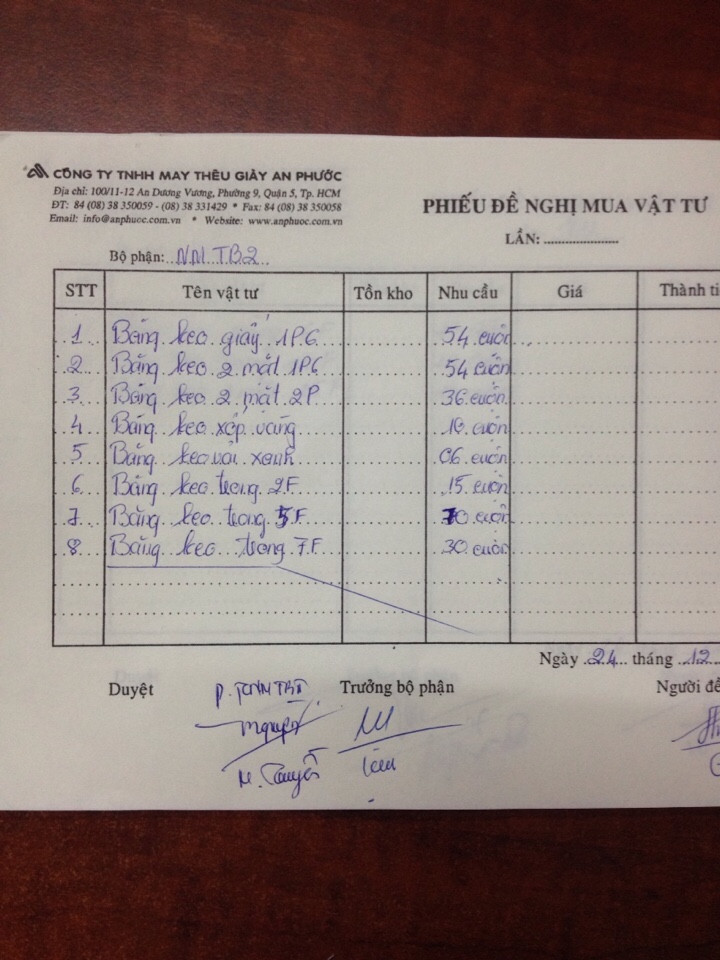 CÔNG TY TNHH MAY THÊU GIÀY AN PHƯỚC
Địa chỉ: 100/11-12 An Dương Vương, Phường 9, Quận 5, Tp. HCM
ĐT: 84 (08) 38 350059 - (08) 38 331429 * Fax: 84 (08) 38 350058
Email: info@anphuoc.com.vn * Website: www.anphuoc.com.vn
PHIẾU ĐỀ NGHỊ MUA VẬT TƯ
LẦN: ......................
Bộ phận: NN TB2
STT Tên vật tư Tồn kho Nhu cầu Giá Thành ti
1 Băng keo giấy 1P6 54 cuôn
2 Băng keo 2 mặt 1P6 54 cuôn
3 Băng keo 2 mặt 2P 36 cuôn
4 Băng keo xốp vàng 10 cuôn
5 Băng keo vải xanh 06 cuôn
6 Băng keo trong 2F 15 cuôn
7 Băng keo trong 5F 70 cuôn
8 Băng keo trong 7F 30 cuôn
Ngày 24 tháng 12
Duyệt Trưởng bộ phận Người đề